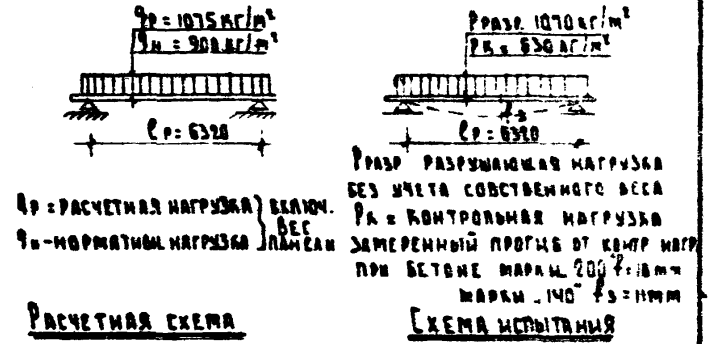 qр = 1075 кг/м²
qн = 900 кг/м²
ℓр = 6320
qр = РАСЧЕТНАЯ НАГРУЗКА
qн - НОРМАТИВН. НАГРУЗКА
ВКЛЮЧ.
ВЕС
ПАНЕЛИ
РАСЧЕТНАЯ СХЕМА
Рразр. 1070 кг/м²
Рк = 630 кг/м²
fз
ℓр = 6320
Рразр РАЗРУШАЮЩАЯ НАГРУЗКА
БЕЗ УЧЕТА СОБСТВЕННОГО ВЕСА
Рк = КОНТРОЛЬНАЯ НАГРУЗКА
ЗАМЕРЕННЫЙ ПРОГИБ ОТ КОНТР НАГР
ПРИ БЕТОНЕ МАРКИ „200" f = 10 мм
МАРКИ „140" fз = 11 мм
СХЕМА ИСПЫТАНИЯ